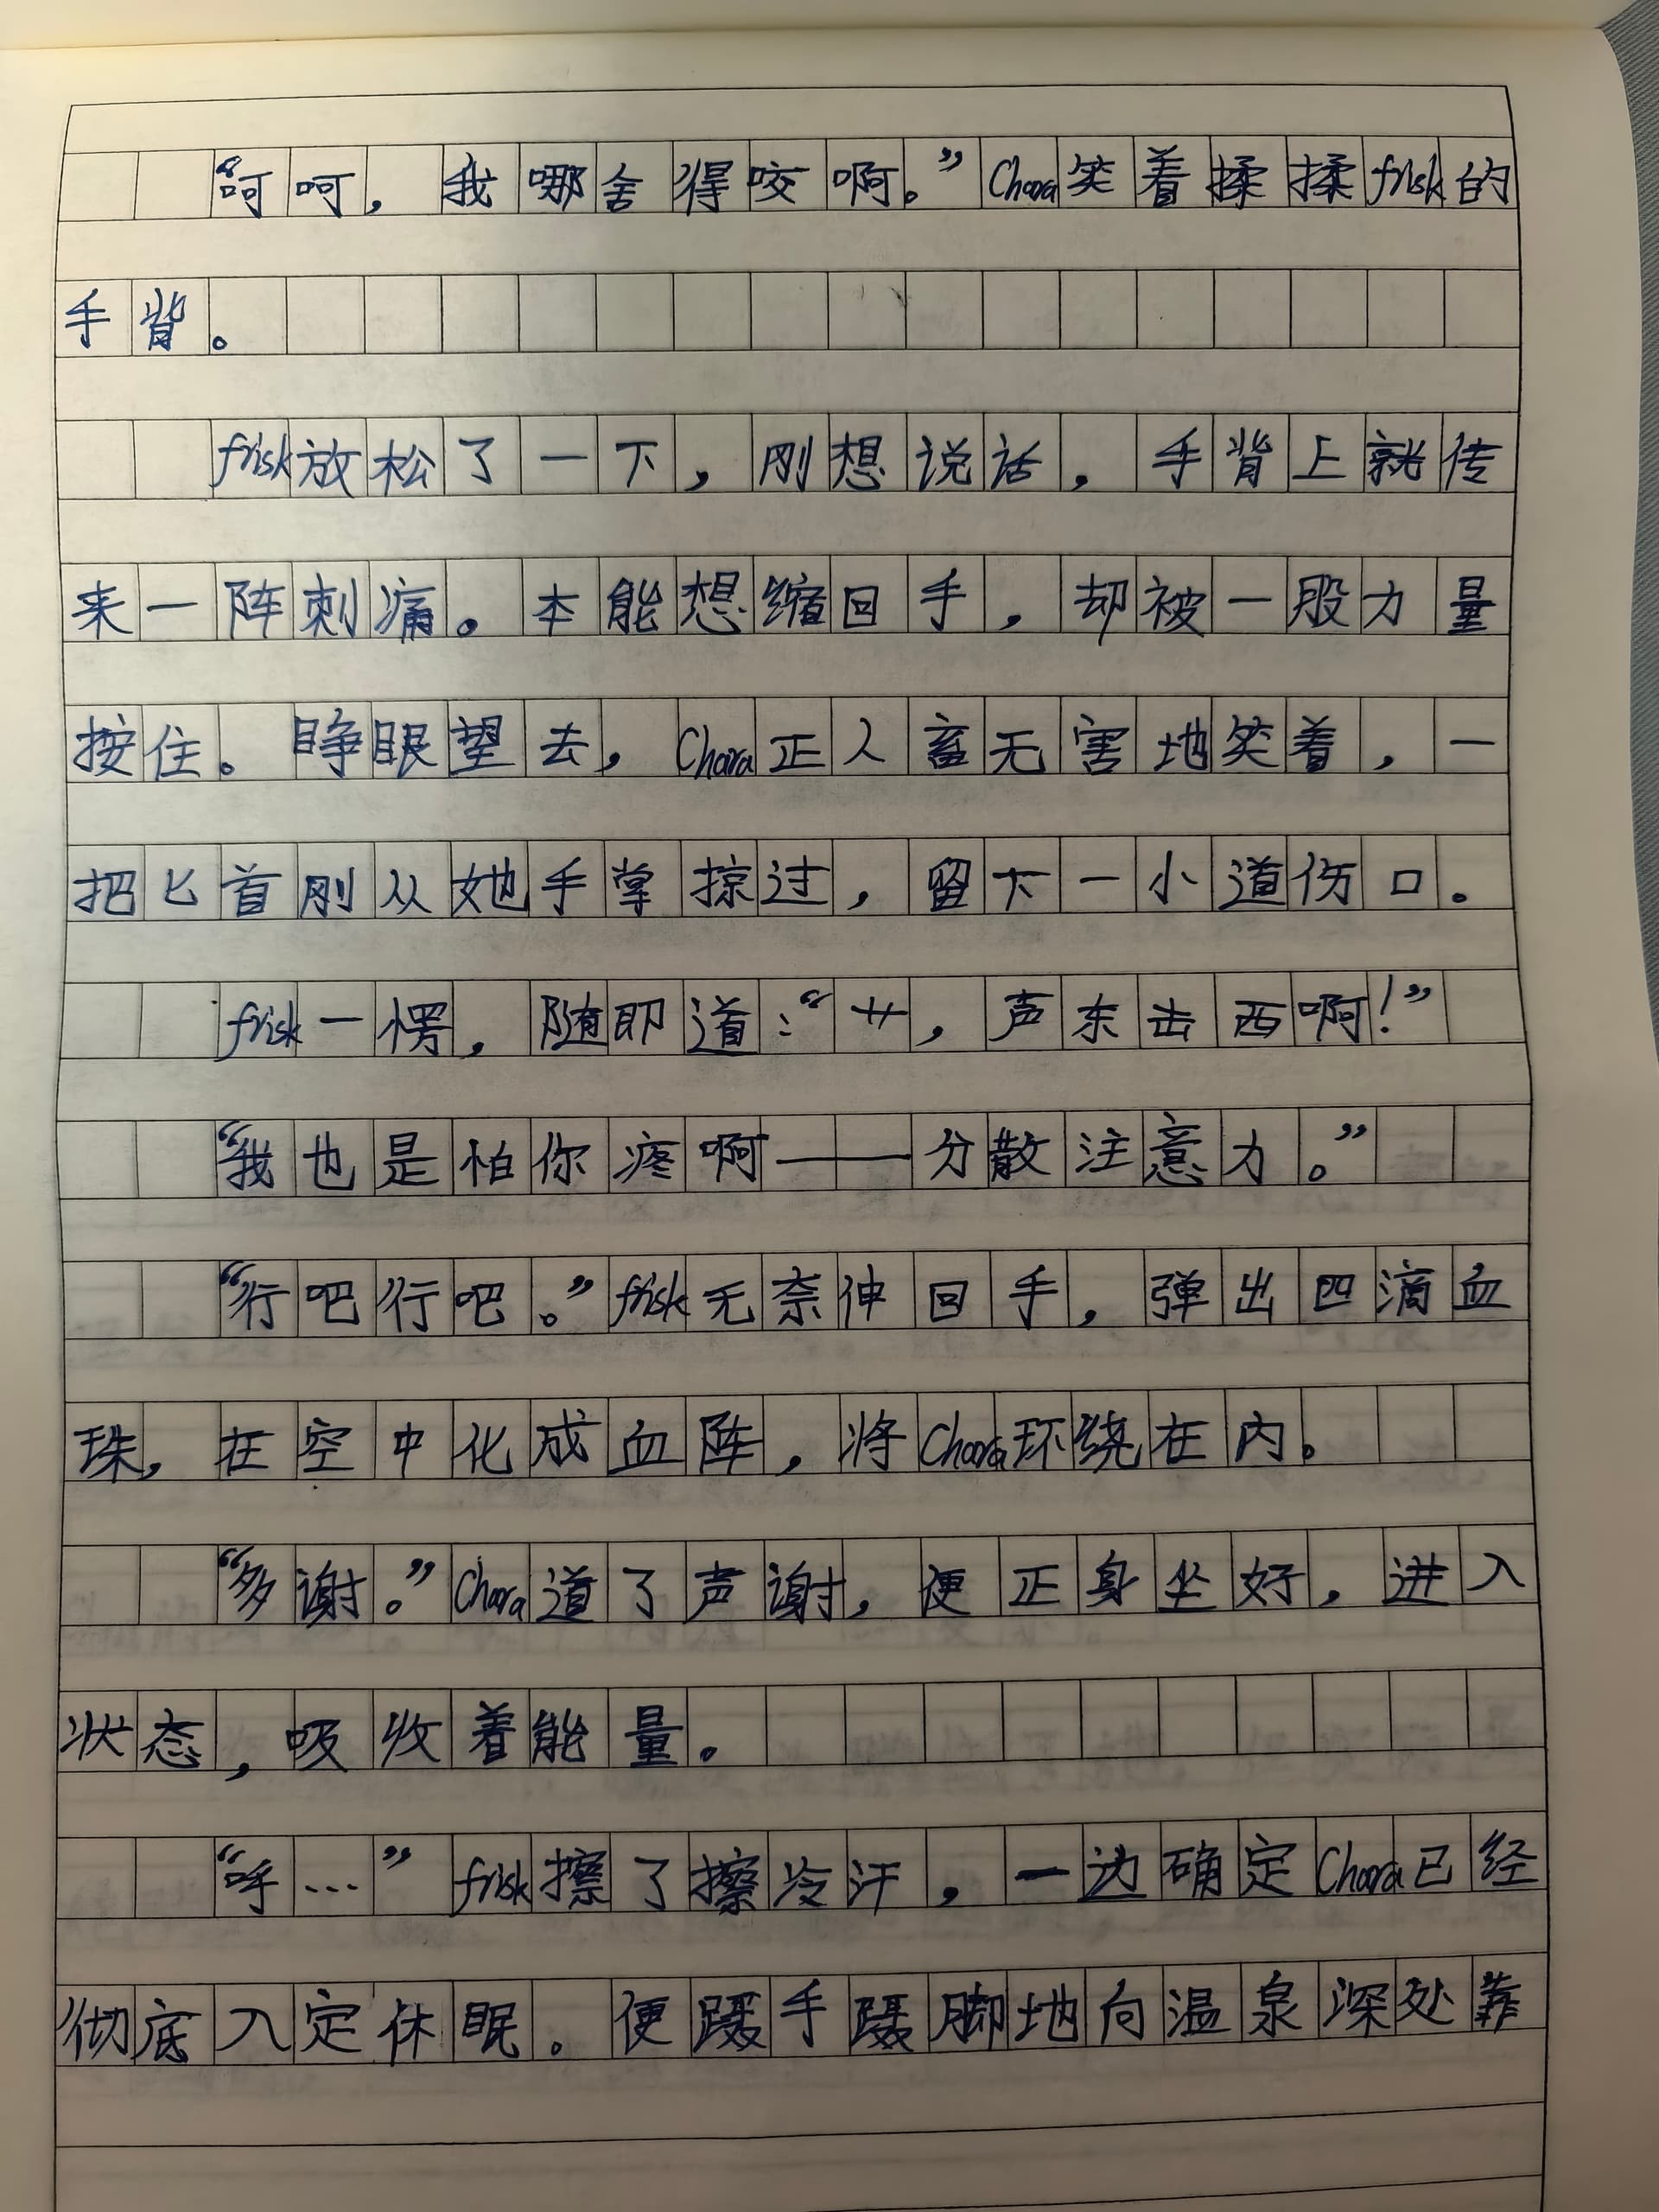 “呵呵，我哪舍得咬啊。”Chara笑着揉揉frisk的
手背。
frisk放松了一下，刚想说话，手背上就传
来一阵刺痛。本能想缩回手，却被一股力量
按住。睁眼望去，Chara正人畜无害地笑着，一
把匕首刚从她手掌掠过，留下一小道伤口。
frisk一愣，随即道：“艹，声东击西啊！”
“我也是怕你疼啊——分散注意力。”
“行吧行吧。”frisk无奈伸回手，弹出四滴血
珠，在空中化成血阵，将Chara环绕在内。
“多谢。”Chara道了声谢，便正身坐好，进入
状态，吸收着能量。
“呼…”frisk擦了擦冷汗，一边确定Chara已经
彻底入定休眠。便蹑手蹑脚地向温泉深处靠